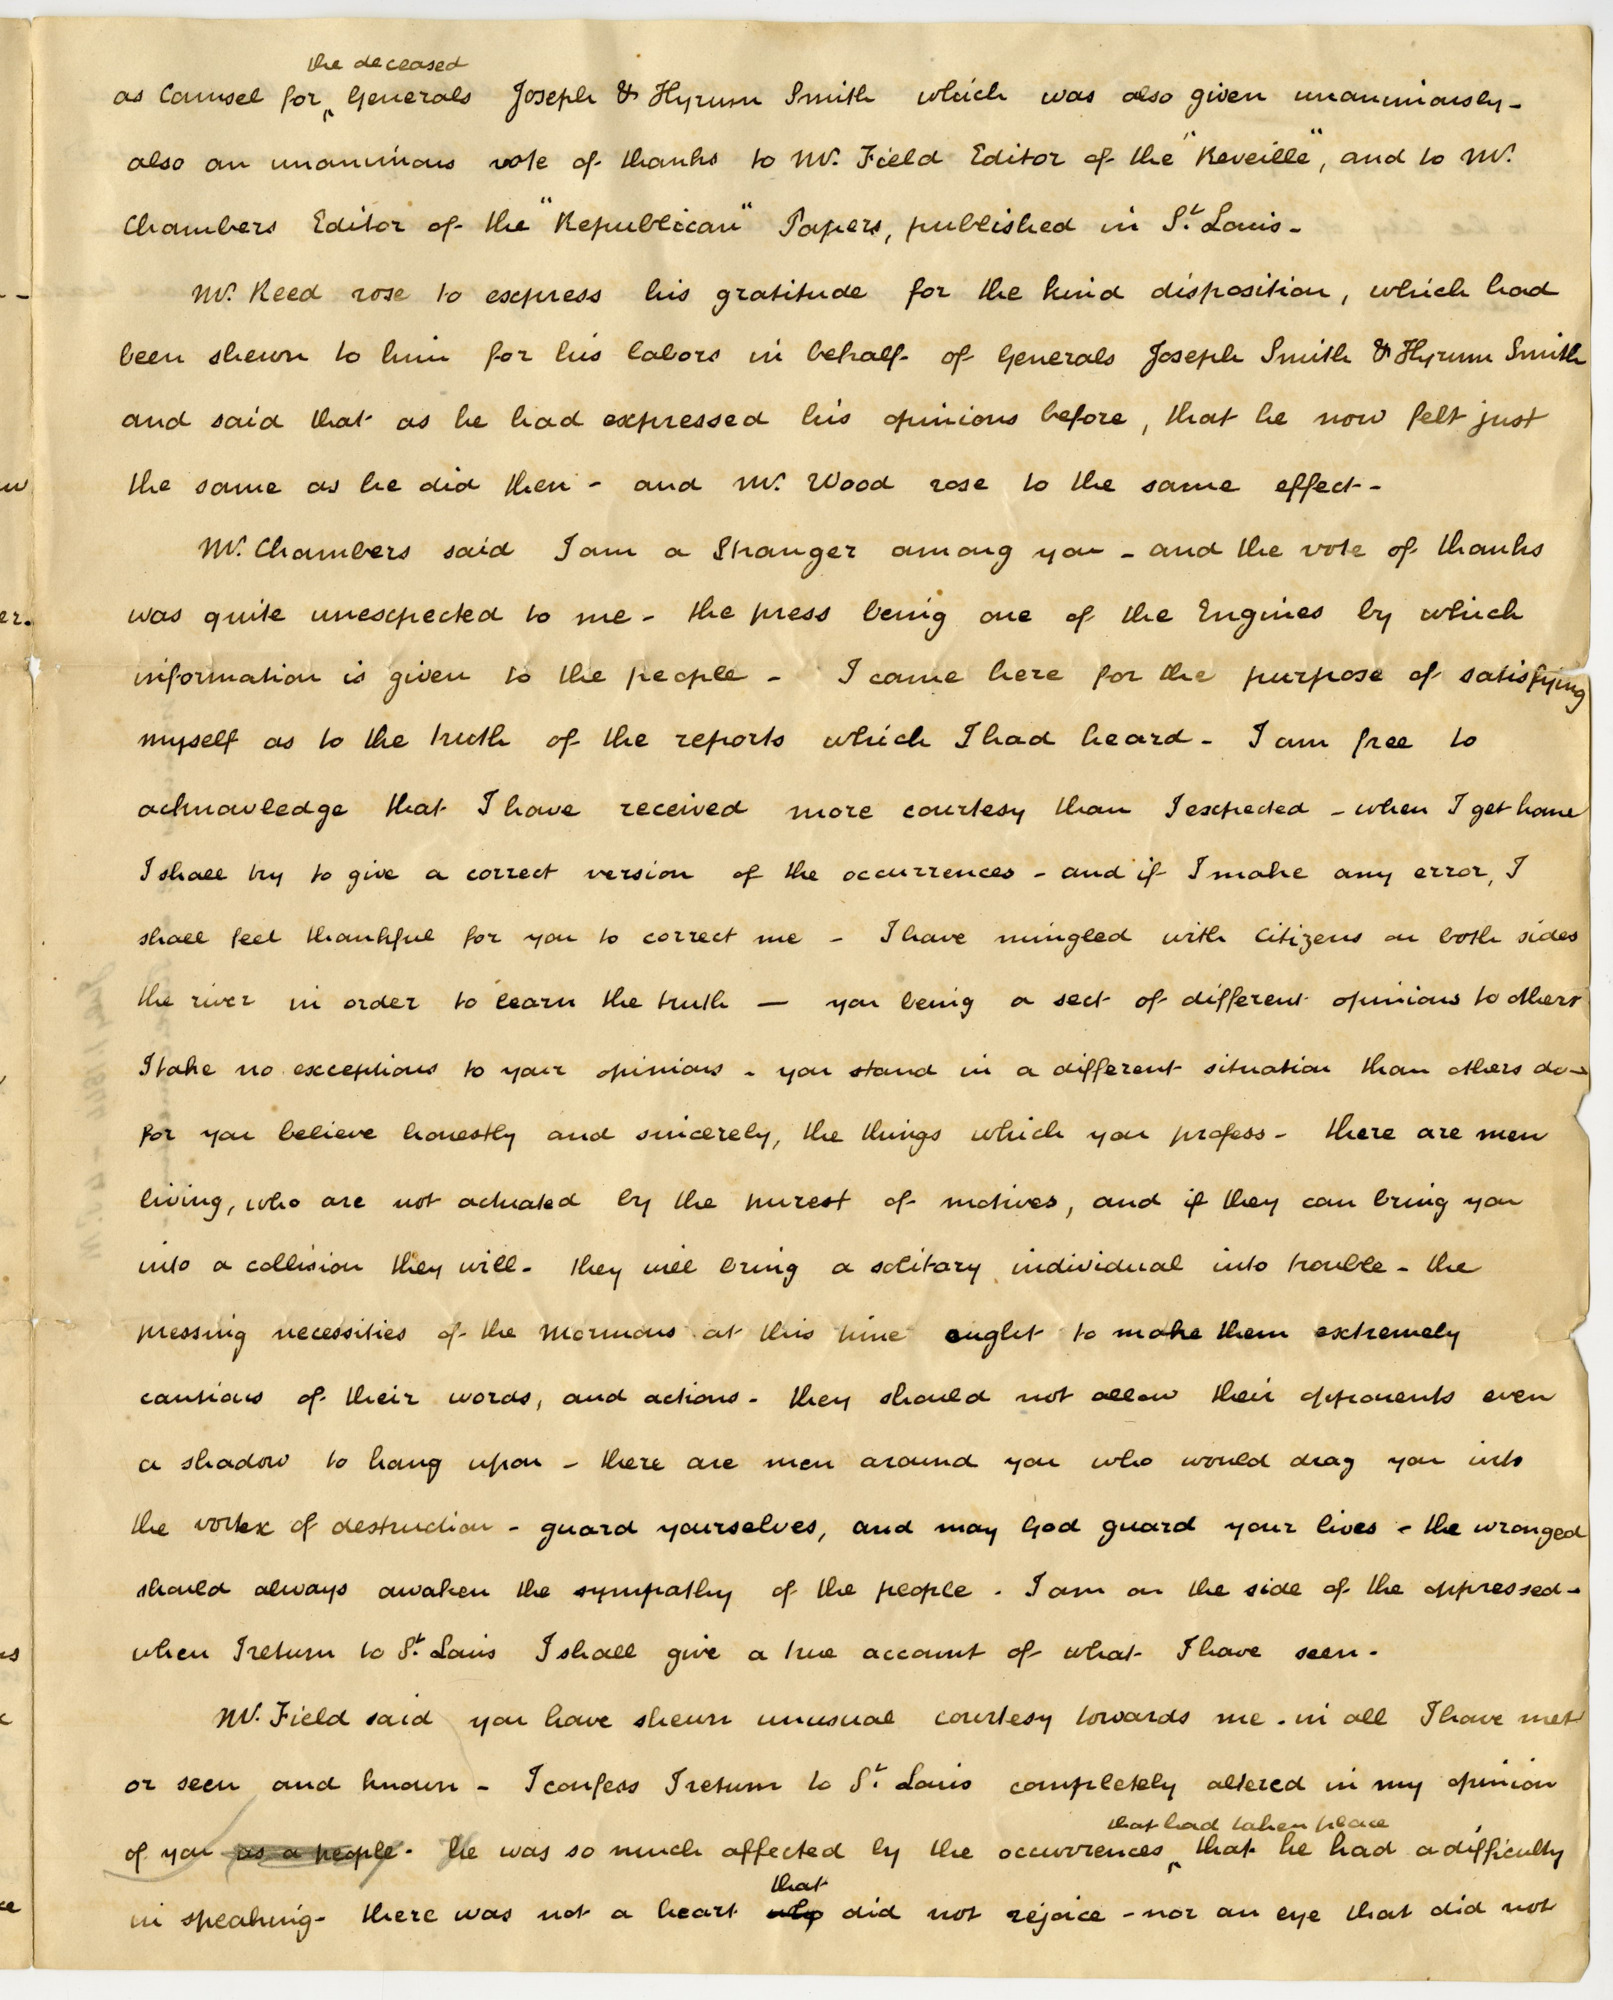 the deceased
as Counsel for ‸ Generals Joseph & Hyrum Smith which was also given unanimously -
also an unanimous vote of thanks to Mr. Field Editor of the "Reveille", and to Mr.
Chambers Editor of the "Republican" Papers, published in St. Louis -
Mr. Reed rose to express his gratitude for the kind disposition, which had
been shewn to him for his labors in behalf of Generals Joseph Smith & Hyrum Smith
and said that as he had expressed his opinions before, that he now felt just
the same as he did then - and Mr. Wood rose to the same effect -
Mr. Chambers said I am a Stranger among you - and the vote of thanks
was quite unexpected to me - the press being one of the Engines by which
information is given to the people - I came here for the purpose of satisfying
myself as to the truth of the reports which I had heard - I am free to
acknowledge that I have received more courtesy than I expected - when I get home
I shall try to give a correct version of the occurrences - and if I make any error, I
shall feel thankful for you to correct me - I have mingled with Citizens on both sides
the river in order to learn the truth — you being a sect of different opinions to others
I take no exceptions to your opinions - you stand in a different situation than others do -
for you believe honestly and sincerely, the things which you profess - there are men
living, who are not actuated by the purest of motives, and if they can bring you
into a collision they will - they will bring a solitary individual into trouble - the
pressing necessities of the Mormons at this time ought to make them extremely
cautious of their words, and actions - they should not allow their opponents even
a shadow to hang upon - there are men around you who would drag you into
the vortex of destruction - guard yourselves, and may God guard your lives - the wronged
should always awaken the sympathy of the people - I am on the side of the oppressed -
when I return to St. Louis I shall give a true account of what I have seen -
Mr. Field said you have shewn unusual courtesy towards me - in all I have met
or seen and known - I confess I return to St. Louis completely altered in my opinion
that had taken place
of you as a people - He was so much affected by the occurrences ‸ that he had a difficulty
that
in speaking - there was not a heart who did not rejoice - nor an eye that did not